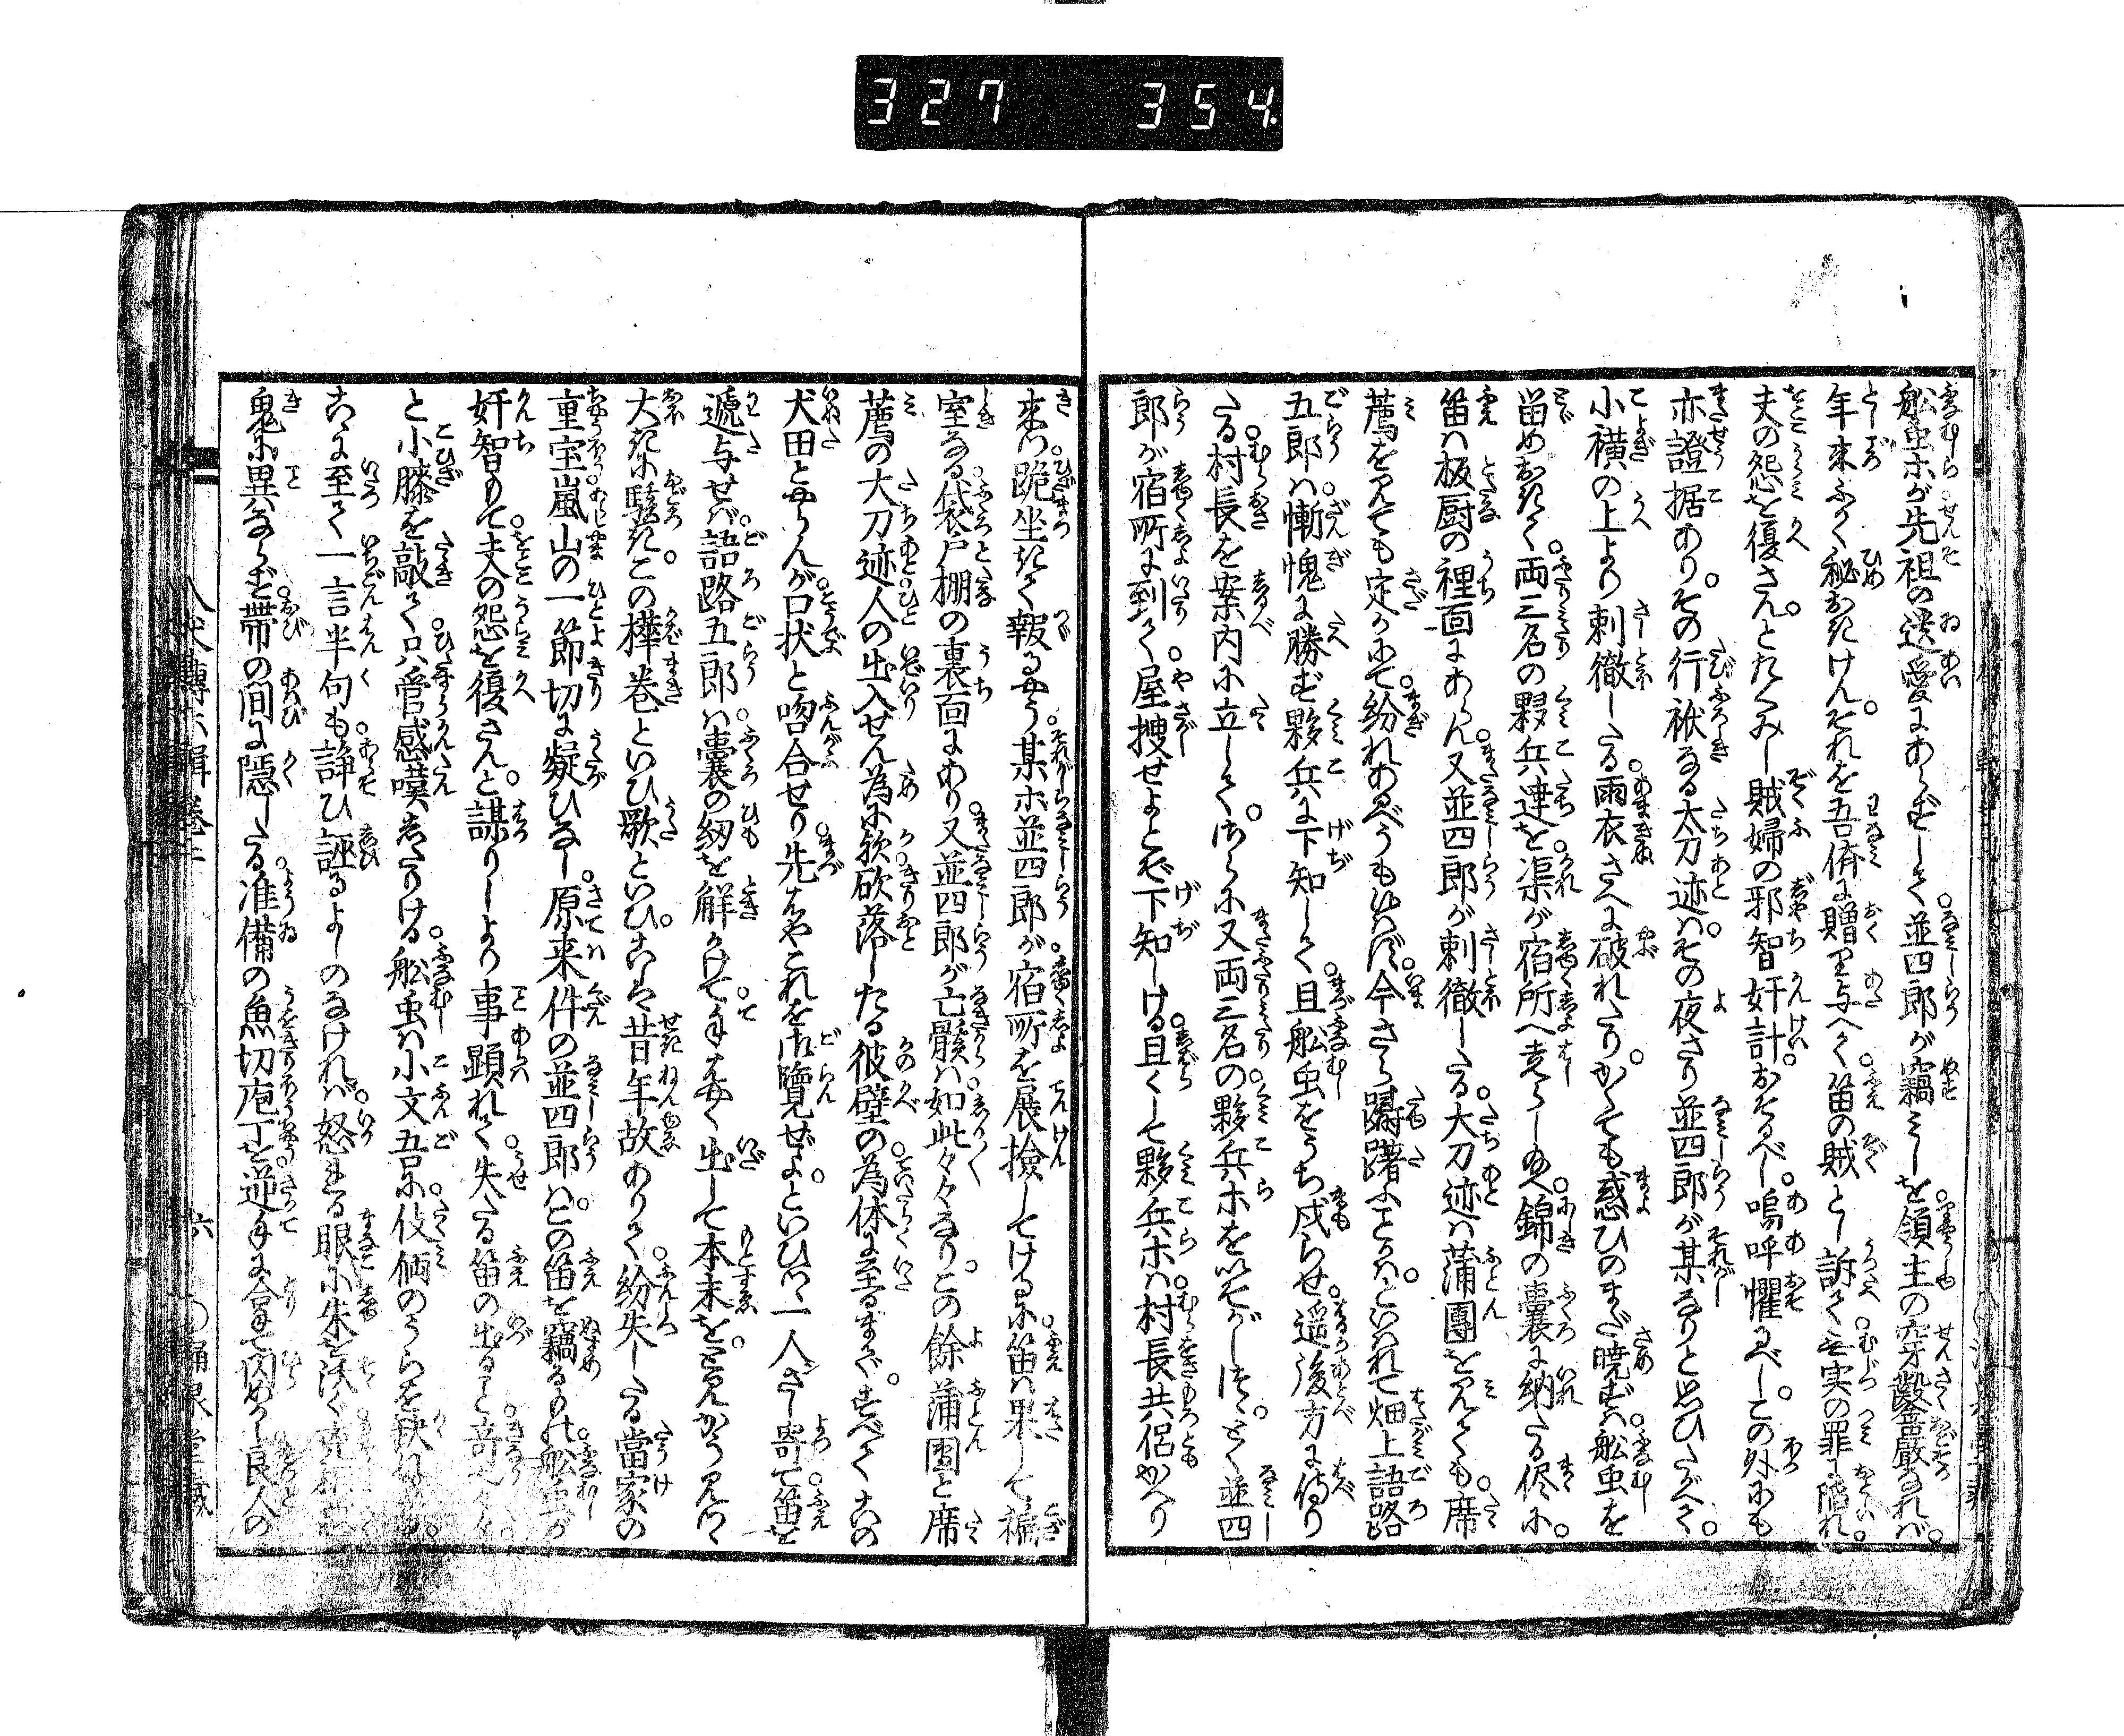 327 354.
舩虫ホが先祖の遺愛にあらずして並四郎が竊みしを領主の穿鑿嚴なれバ
年来ふかく秘おきけんそれを吾儕に贈り与へて笛の賊とし訴て無実の罪に陥れ
夫の怨を復さんとたくみし賊婦の邪智奸計おそるべし嗚呼懼るべしこの外にも
亦證据ありその行袱なる太刀迹ハその夜さり並四郎が某なりと思ひたがへて
小𧝒の上より刺徹したる雨衣さへに破れたりかくても惑ひのまだ暁ずハ舩虫を
畄めおきて両三名の夥兵達を渠が宿所へ走らし給へ錦の嚢に納たる侭に
笛ハ板厨の裡面にあらん又並四郎が刺徹したる大刀迹ハ蒲團を見ても席
薦を見ても定かにて紛れあるべうも候ハず今さら躊躇ふことかハといはれて畑上語路
五郎ハ慚愧に勝ず夥兵に下知して且舩虫をうち戍らせ遥後方に侍り
たる村長を案内に立して俄に又両三名の夥兵ホをいそがしつゝとく並四
郎が宿所に到りて屋捜せよとぞ下知しける且くして夥兵ホハ村長共侶かへり
来つ跪坐きて報るやう某ホ並四郎が宿所を展撿してけるに笛ハ果して褊
室なる袋戸棚の裏面にあり又並四郎が亡骸ハ如此々々なりこの餘蒲團と席
薦の大刀迹人の出入せん為に欤砍落したる彼壁の為体に至るまですべてみな
犬田とやらんが口状と吻合せり先はやこれを御覽ぜよといひつゝ一人さし寄て笛を
遞与せバ語路五郎ハ嚢の紐を觧かけて手はやく出して本末をと見かう見つゝ
大きに駭きこの樺巻といひ歌といひこは昔年故ありて紛失したる當家の
重宝嵐山の一節切に疑ひなし原来件の並四郎ハこの笛を竊るもの欤舩虫が
奸智もて夫の怨を復さんと謀りしより事顕れて失たる笛の出ること竒也々々
と小膝を敲て只管感嘆したりける舩虫ハ小文吾に伎倆のうらを缺れ
こゝに至て一言半句も諍ひ誣るよしのなけれバ怒れる眼に朱を沃ぐ
鬼に異ならず帶の間に隱したる准備の魚切庖丁を逆手に拿て閃めかし良人の
八犬傳六輯巻二
六